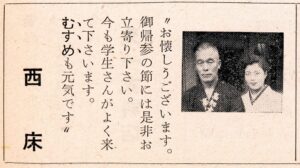 〝お懐しうございます。
御帰参の節には是非お
立寄り下さい。
今も学生さんがよく来
て下さいます。
むすめも元気です〟
西床